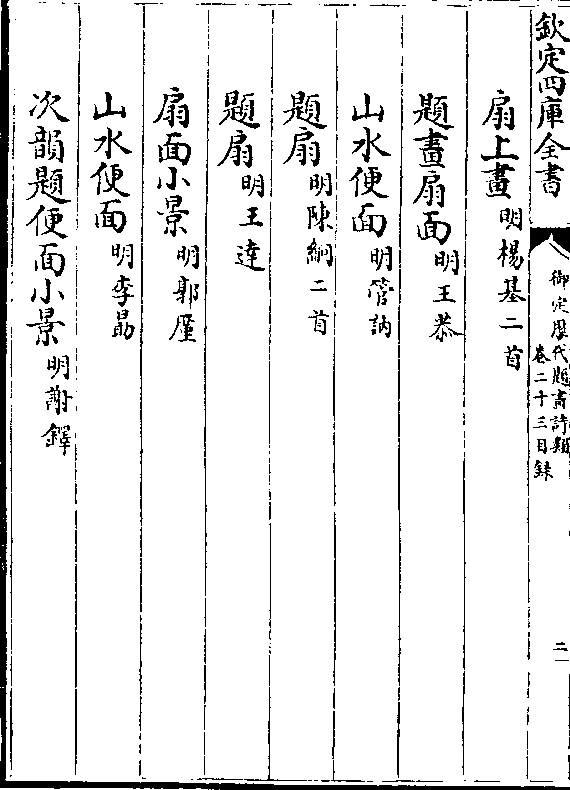 欽定四庫全書
御定歷代題畫詩類
卷二十三目錄
二
扇上畫明楊基二首
題畫扇面明王恭
山水便面明管訥
題扇明陳綱二首
題扇明王達
扇面小景明郭厪
山水便面明李勗
次韻題便面小景明謝鐸